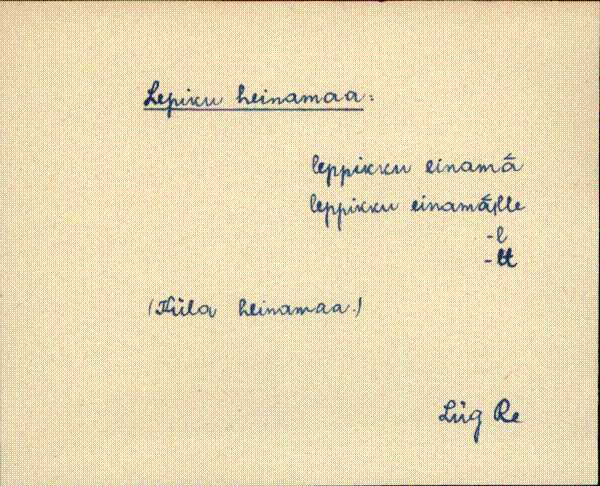 Lepiku heinamaa:
leppikku einamā́
leppikku einamā́lle
-l
-lt
(Küla heinamaa.)
Lüg Re